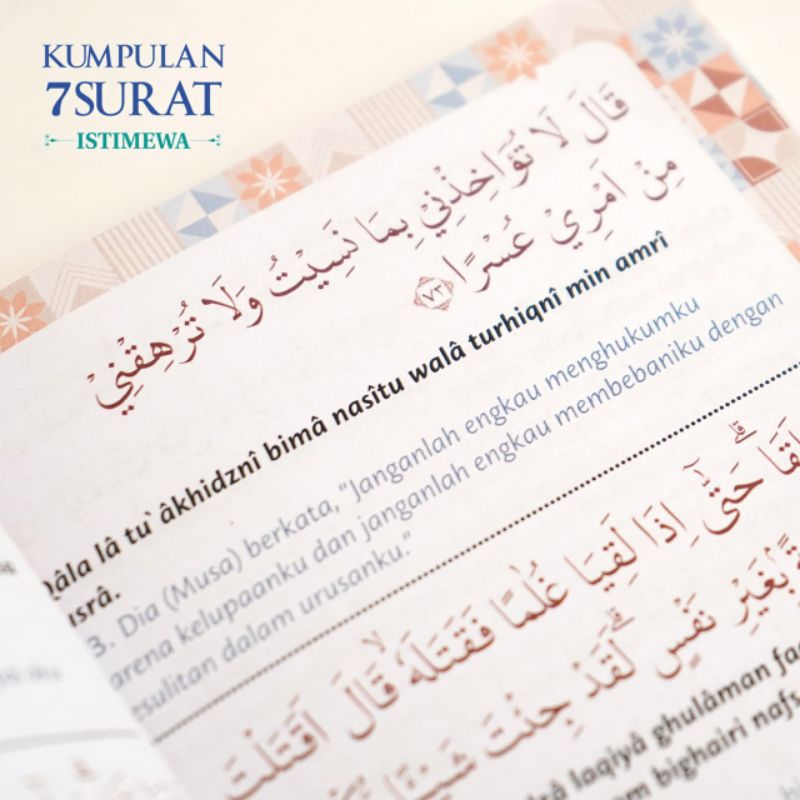 KUMPULAN
7SURAT
ISTIMEWA
قَالَ لَا تُؤَاخِذْنِيْ بِمَا نَسِيْتُ وَلَا تُرْهِقْنِيْ
مِنْ اَمْرِيْ عُسْرًا ٧٣
Qâla lâ tu`âkhidznî bimâ nasîtu walâ turhiqnî min amrî
usrâ.
3. Dia (Musa) berkata, “Janganlah engkau menghukumku
arena kelupaanku dan janganlah engkau membebaniku dengan
esulitan dalam urusanku.”
حَتّٰىٓ اِذَا لَقِيَا غُلٰمًا فَقَتَلَهٗ ۙقَالَ اَقَتَلْتَ
بِغَيْرِ نَفْسٍۗ لَقَدْ جِئْتَ شَيْـًٔا
laqiyâ ghulâman
bighairi nafs